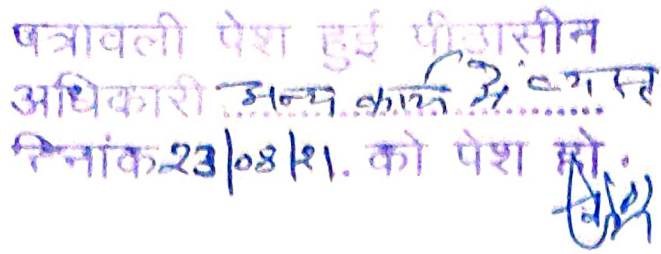 पत्रावली पेश हुई पीठासीन
अधिकारी अन्य कार्य में व्यस्त
दिनांक 23/08/21. को पेश हो.